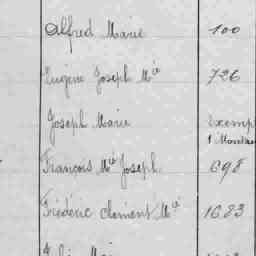 Alfred Marie 100
Eugène Joseph Mie 726
Joseph Marie exemp
François Mie Joseph 698
Frédéric Clément Mie 1683